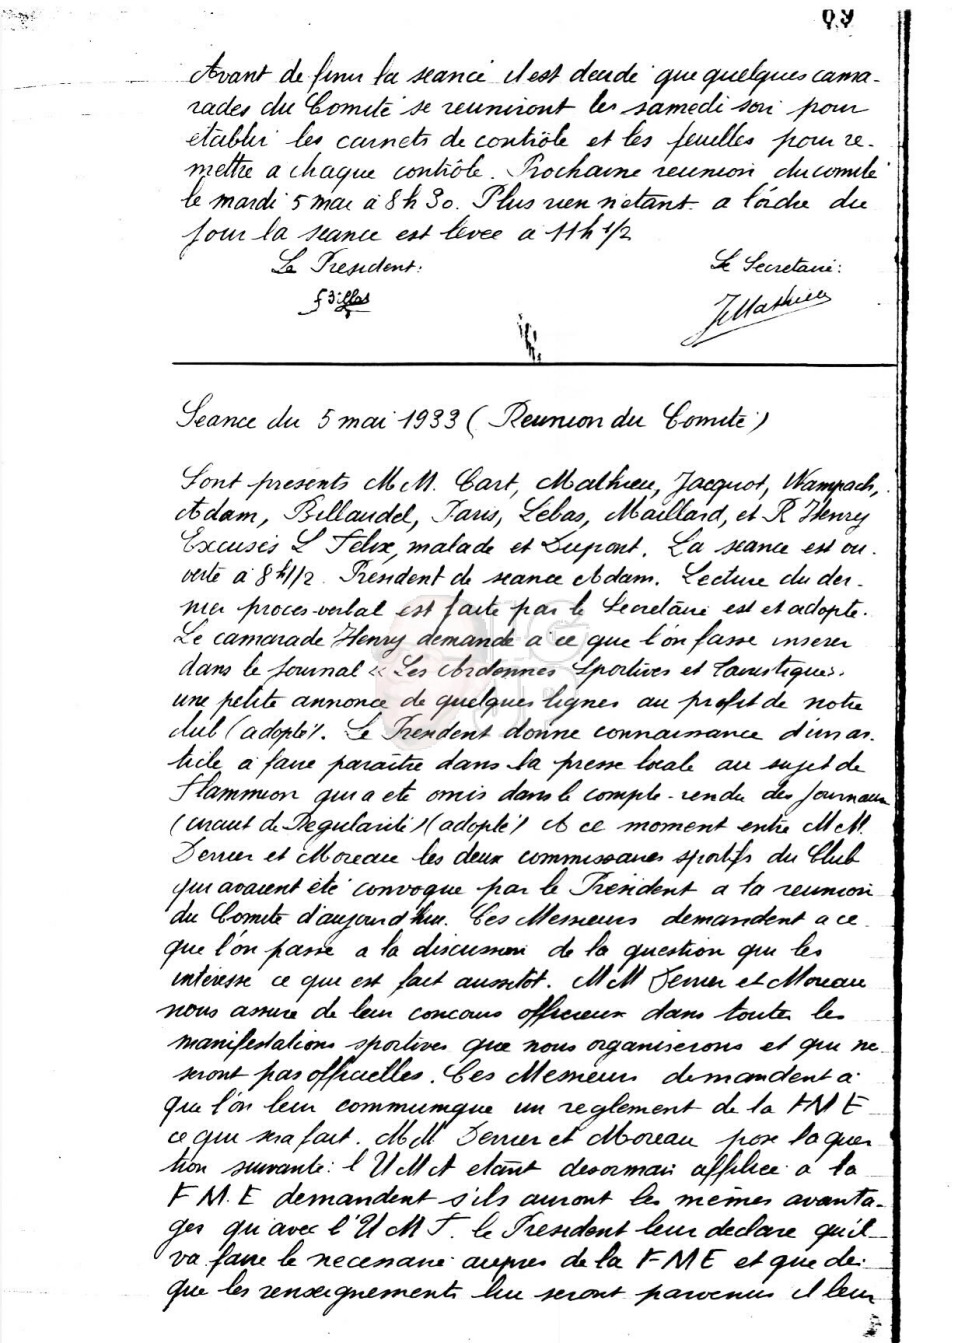 69
Avant de finir la seance il est decidé que quelques cama-
rades du Comité se reuniront les samedi soir pour
etablir les carnets de contrôle et les feuilles pour re-
mettre a chaque contrôle. Prochaine reunion du comité
le mardi 5 mai à 8h30. Plus rien n'etant a l'ordre du
jour la seance est levée a 11h 1/2
Le President:
Le Secretaire:
JMathieu
Seance du 5 mai 1933 (Reunion du Comité)
Sont presents MM. Cart, Mathieu, Jacquot, Wampach,
Adam, Billaudel, Paris, Lebas, Maillard, et R Henry
Excusés L Felix, malade et Dupont. La seance est ou-
verte à 8h1/2. President de seance Adam. Lecture du der-
nier proces-verbal est faite par le Secretaire est et adopte.
Le camarade Henry demande a ce que l'on fasse inserer
dans le journal « Les Ardennes Sportives et Touristiques »
une petite annonce de quelques lignes au profit de notre
club (adopté). Le President donne connaissance d'un ar-
ticle a faire paraître dans la presse locale au sujet de
Flammion qui a ete omis dans le compte-rendu des journaux
(circuit de Regularité) (adopté) A ce moment entre MM.
Derrier et Moreau les deux commissaires sportifs du Club
qui avaient été convoque par le President a la reunion
du Comite d'aujourd'hui. Ces Messieurs demandent a ce
que l'on passe a la discussion de la question qui les
interesse ce que est fait aussitot. MM Derrier et Moreau
nous assure de leur concours officieux dans toutes les
manifestations sportives que nous organiserons et qui ne
seront pas officielles. Ces Messieurs demandent à
que l'on leur communique un reglement de la FME
ce qui sera fait. MM Derrier et Moreau pose la ques
tion suivante: l'UMA etant desormais affiliée a la
F M. E demandent s'ils auront les mêmes avanta-
ges qu'avec l'UMF. le President leur declare qu'il
va faire le necessaire aupres de la FME et que des
que les renseignements lui seront parvenus il leur